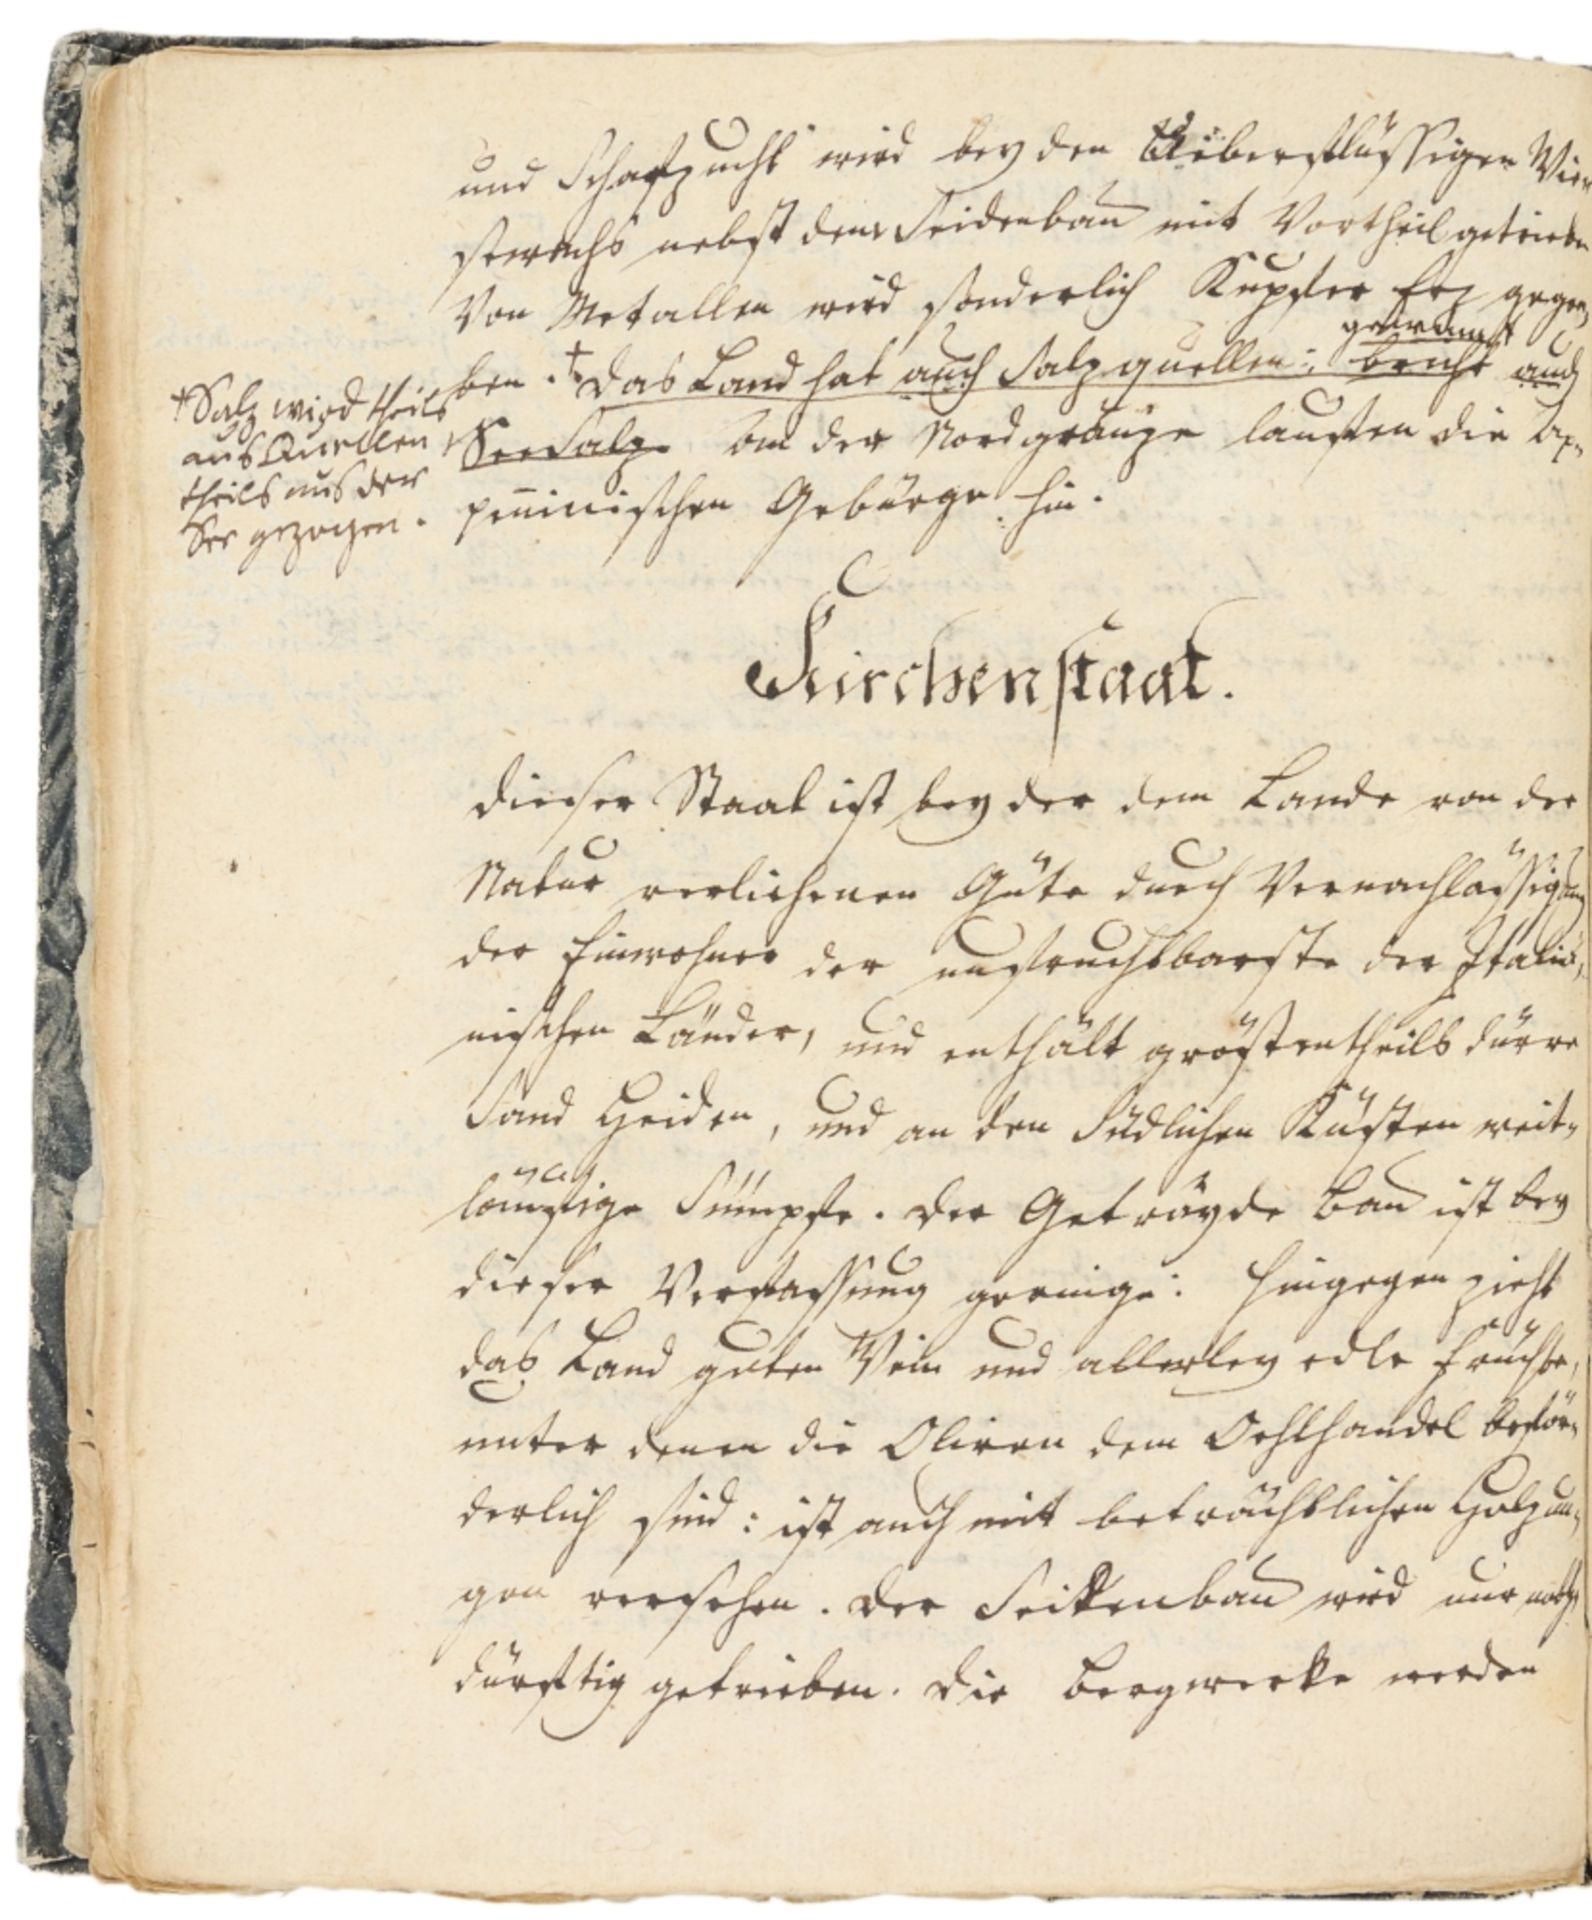 und Schafzucht wird bey den Ueberflüssigen Wie-
sewachs nebst dem Seidenbau mit Vortheil getrieben
Von Metallen wird sonderlich Kupfer Erz gege-
gewinnt
ben. † Das Land hat auch Salzquellen: braucht auch
Seesalz. An der Nordgränze lauffen die Ap-
penninischen Gebürge hin.
† Salz wird theils
aus Quellen
theils aus der
See gezogen.
Kirchenstaat.
Dieser Staat ist bey der dem Lande von der
Natur verliehenen Güte durch Vernachlässigung
der Einwohner der unfruchtbarste der Italiä-
nischen Länder, und enthält gröstentheils dürre
Sand Heiden, und an den Südlichen Küsten weit-
läuftige Sümpfe. Der Geträyde Bau ist bey
dieser Verfassung geringe: hingegen zieht
das Land guten Wein und allerley edle Früchte,
unter denen die Oliven dem Oehlhandel beför-
derlich sind: ist auch mit beträchtlichen Holzun-
gen versehen. Der Seidenbau wird nur noth-
dürftig getrieben. Die Bergwerke werden